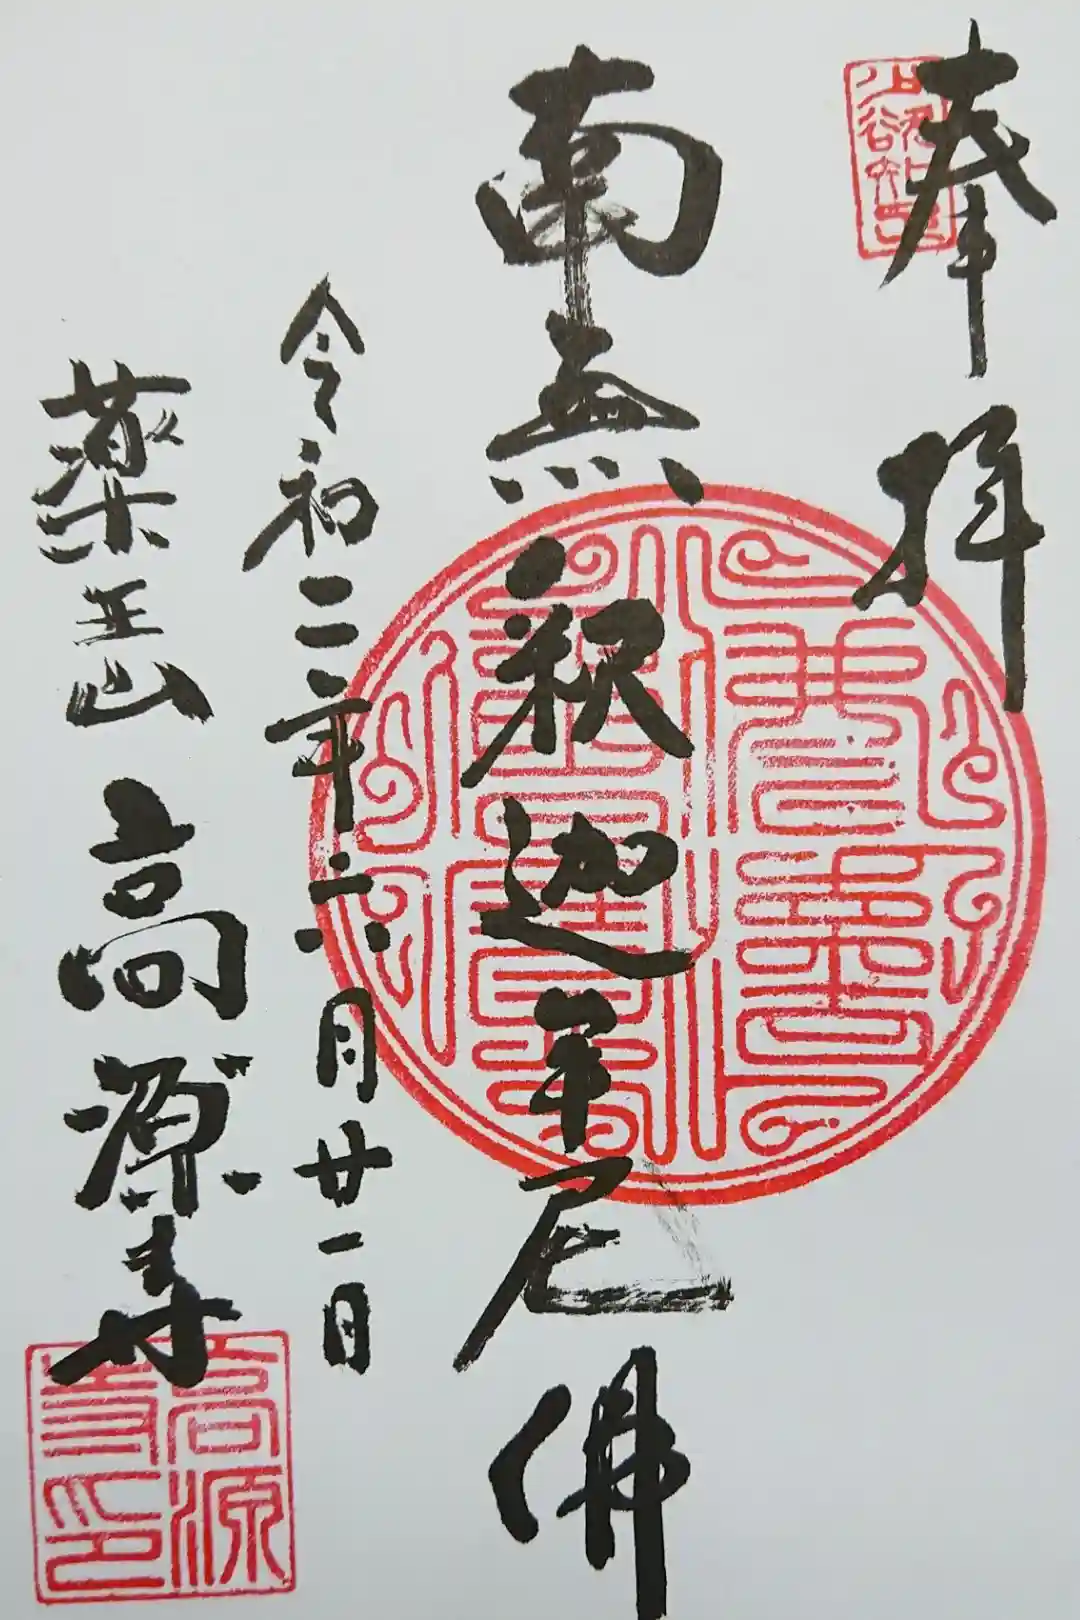 奉拝
南無釈迦牟尼佛
令和二年六月廿一日
薬王山 高源寺
少欲知足
高源
寺印